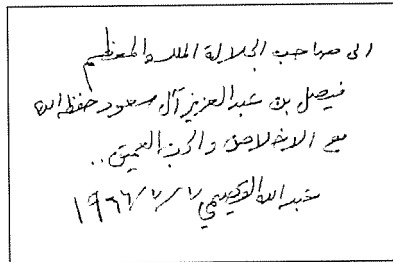 الى صاحب الجلالة الملك المعظم
فيصل بن عبد العزيز آل سعود حفظه الله
مع الاخلاص والحب العميق..
عبد الله القصيمي ١٩٦٦/٧/٧